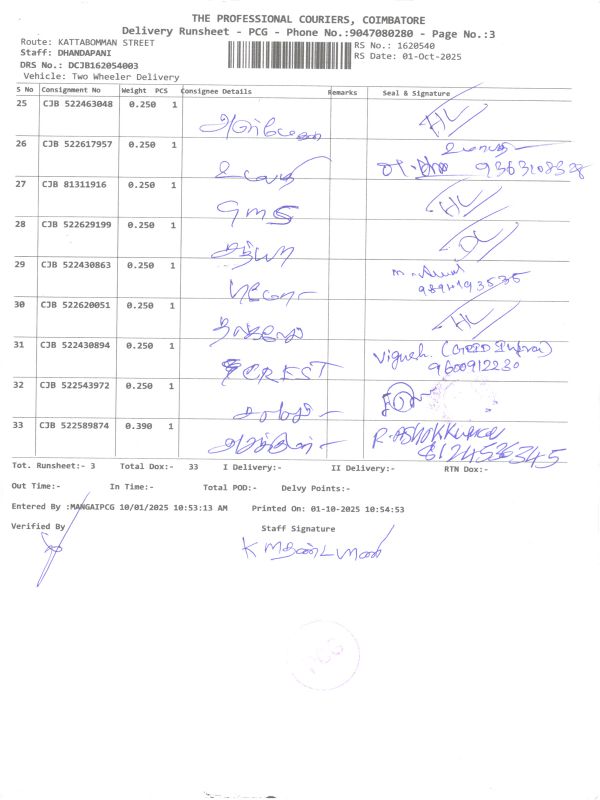 THE PROFESSIONAL COURIERS, COIMBATORE
Delivery Runsheet - PCG - Phone No.:9047080280 - Page No.:3
Route: KATTABOMMAN STREET
RS No.: 1620540
Staff: DHANDAPANI
RS Date: 01-Oct-2025
DRS No.: DCJB162054003
Vehicle: Two Wheeler Delivery
S No Consignment No Weight PCS Consignee Details Remarks Seal & Signature
25 CJB 522463048 0.250 1
HL
26 CJB 522617957 0.250 1
9363108328
27 CJB 81311916 0.250 1
GMS HL
28 CJB 522629199 0.250 1
29 CJB 522430863 0.250 1
9894193535
30 CJB 522620051 0.250 1
HL
31 CJB 522430894 0.250 1
CREST Vignesh. (GRID Infra)
9600912230
32 CJB 522543972 0.250 1
33 CJB 522589874 0.390 1
R. ASHOKKUMAR
8124536345
Tot. Runsheet:- 3 Total Dox:- 33 I Delivery:- II Delivery:- RTN Dox:-
Out Time:- In Time:- Total POD:- Delvy Points:-
Entered By :MANGAIPCG 10/01/2025 10:53:13 AM Printed On: 01-10-2025 10:54:53
Verified By Staff Signature
PCG